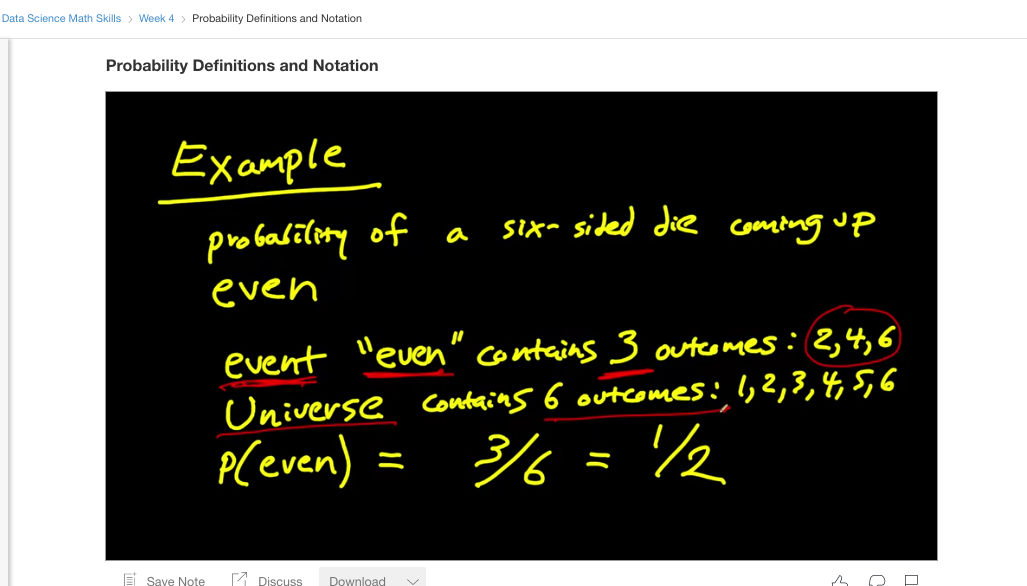 Data Science Math Skills > Week 4 > Probability Definitions and Notation
Probability Definitions and Notation
Example
probability of a six-sided die coming up
even
event "even" contains 3 outcomes: 2,4,6
Universe contains 6 outcomes: 1,2,3,4,5,6
P(even) = 3/6 = 1/2
Save Note Discuss Download